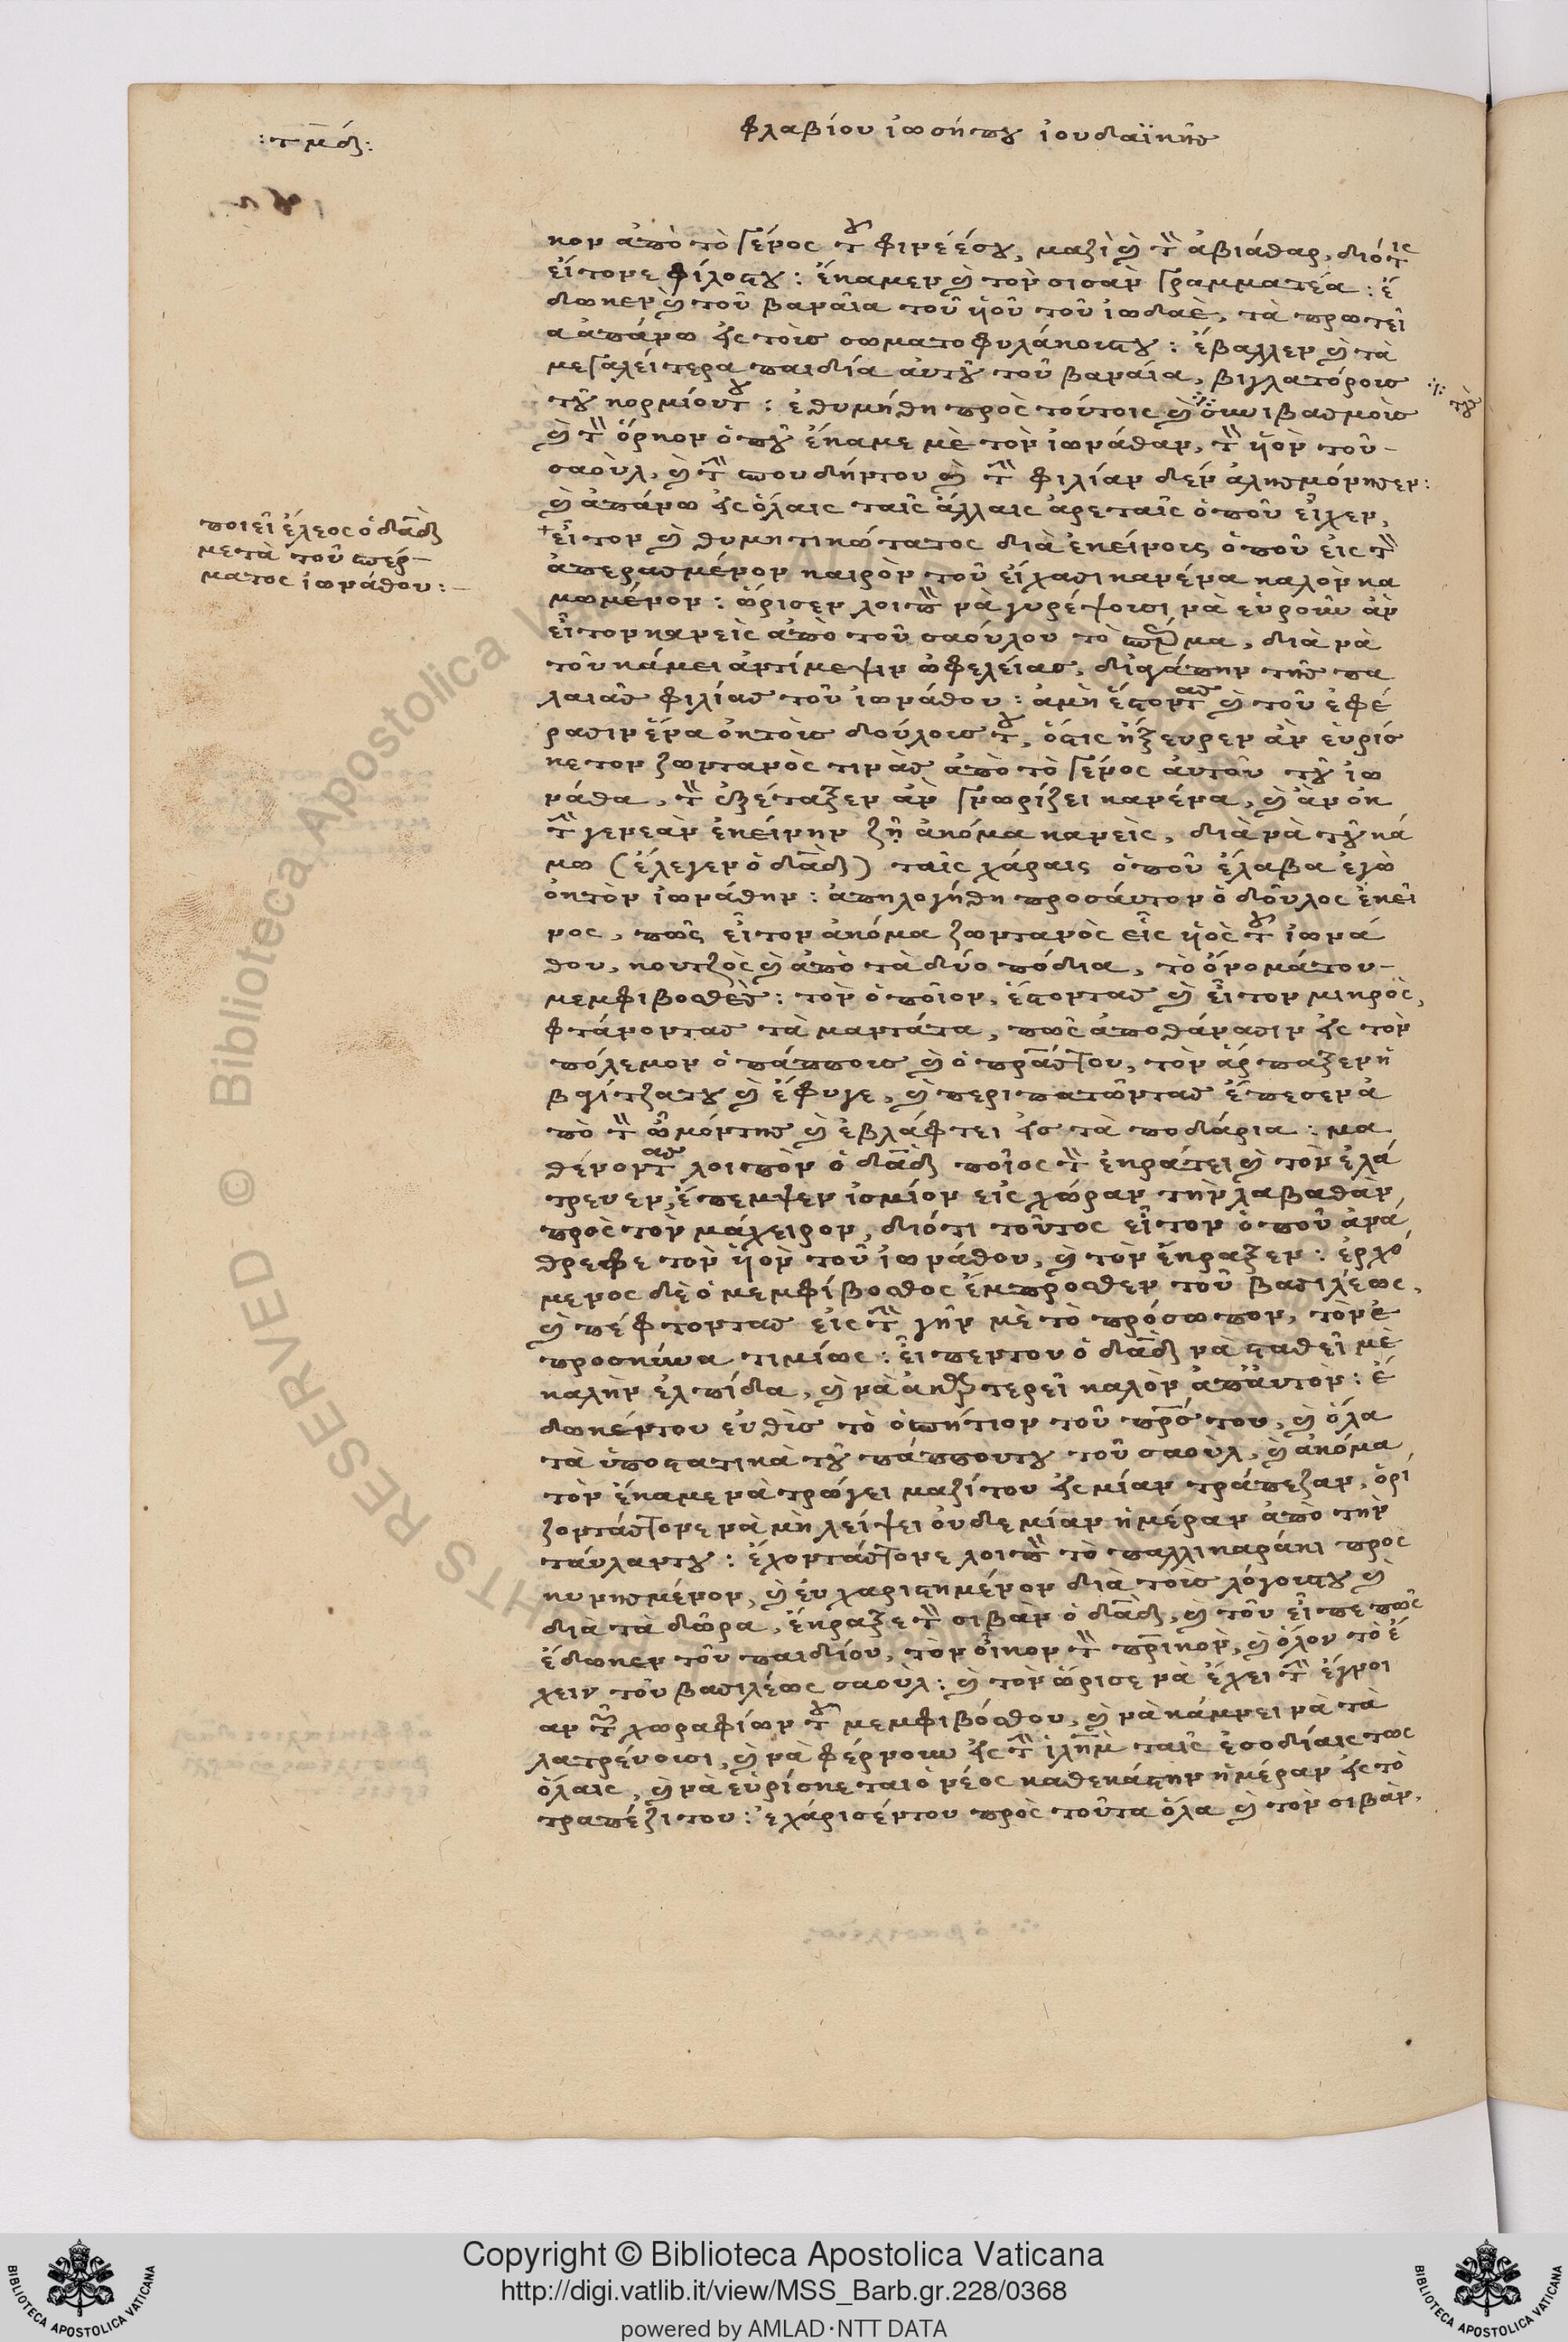 :τμδ:
φλαβίου ἰωσήπου ἰουδαϊκῆς
κον ἀπὸ τὸ γένος τοῦ φινεέσου, μαζὶ καὶ τὸν ἀβιάθαρ, διότις
εἴτονε φίλοςτου: ἔκαμεν καὶ τὸν σισὰν γραμματέα: ἔ
δωκεν καὶ τοῦ βαναῖα τοῦ ἡοῦ τοῦ ἰωδαὲ, τὰ πρωτεῖ
α ἀπάνω εἰς τοῖς σωματοφυλάκοιςτου: ἔβαλλεν καὶ τὰ
μεγαλείτερα παιδία αὐτοῦ τοῦ βαναία, βιγλατόροις
τοῦ κορμίουτου: ἐθυμήθη πρὸς τούτοις καὶ ὀμιβασμοὶς
καὶ τὸν ὅρκον ὁποῦ ἔκαμε μὲ τὸν ἰωνάθαν, τὸν ἡὸν τοῦ
σαοὺλ, καὶ τὴν σπουδήντου καὶ τὴν φιλίαν δὲν ἀλησμόνησεν:
καὶ ἀπάνω εἰς ὅλαις ταῖς ἄλλαις ἀρεταῖς ὁποῦ εἶχεν,
εἶτον καὶ θυμητικώτατος διὰ ἐκείνοις ὁποῦ εἰς τὸν
ἀπερασμένον καιρὸν τοῦ εἴχασι κανένα καλὸν κα
μωμένον: ὥρισεν λοιπὸν νὰ γυρέψοισι νὰ εὑροῦν ἀν
εἶτον κανεὶς ἀπὸ τοῦ σαούλου τὸ σπέρμα, διὰ νὰ
τοῦ κάμει ἀντίμεψιν ὠφελείας, δι' ἀγάπην τῆς πα
λαιᾶς φιλίας τοῦ ἰωνάθου: ἀμὴ ἔστοντας καὶ τοῦ ἐφέ
ρασιν ἕνα ἐκ τοὶς δούλοις του, ὅστις ἤξευρεν ἀν εὑρίσ
κετον ζωντανὸς τινὰς ἀπὸ τὸ γένος αὐτοῦ τοῦ ἰω
νάθα, τὸν ἐξέταξεν ἀν γνωρίζει κανένα, καὶ ἀν ἐκ
τὴν γενεὰν ἐκείνην ζῆ ἀκόμα κανεὶς, διὰ νὰ τοῦ κά
μω (ἔλεγεν ὁ δαδ) ταῖς χάραις ὁποῦ ἔλαβα ἐγὼ
ἐκ τὸν ἰωνάθην: ἀπηλογήθη προσάυτον ὁ δοῦλος ἐκεῖ
νος, πῶς εἶτον ἀκόμα ζωντανὸς εἷς ἡὸς τοῦ ἰωνά
θου, κουτζὸς καὶ ἀπὸ τὰ δύο πόδια, τὸ ὄνομάτου
μεμφιβοσθὲς: τὸν ὁποῖον, ἔστοντας καὶ εἶτον μικρὸς,
φτάνοντας τὰ μαντάτα, πῶς ἀποθάνασιν εἰς τὸν
πόλεμον ὁ πάπποις καὶ ὁ πραστου, τὸν ἅρπαξεν ἡ
βαγίτζατου καὶ ἔφυγε, καὶ περιπατῶντας ἔπεσεν ἀ
πὸ τὸν ὦμόντης καὶ ἐβλάφτει εἰσ τὰ ποδάρια: μα
θένοντας λοιπὸν ὁ δαδ ποῖος τὸν ἐκράτει καὶ τὸν ἐλά
τρευεν, ἔπεμψεν ἰσμίον εἰς χώραν τὴν λαβαθὰν,
πρὸς τὸν μάχειρον, διότι τοῦτος εἶτον ὁποῦ ἀνά
θρεφε τὸν ἡὸν τοῦ ἰωνάθου, καὶ τὸν ἔκραξεν: ἐρχό
μενος δὲ ὁ μεμφίβοσθος ἔμπροσθεν τοῦ βασιλέως,
καὶ πέφτοντας εἰς τὴν γῆν μὲ τὸ πρόσωπον, τὸν ἐ
προσκύνα τιμίως: εἶπεντου ὁ δαδ νὰ σταθεῖ μὲ
καλὴν ἐλπίδα, καὶ νὰ ἀκαρτερεῖ καλὸν ἀπ' αὐτὸν: ἔ
δωκέντου εὐθὶς τὸ ὁσπήτιον τοῦ πρσ του, καὶ ὅλα
τὰ ὑποστατικὰ τοῦ πάππουτου τοῦ σαοὺλ, καὶ ἀκόμα
τὸν ἔκαμε νὰ τρώγει μαζίτου εἰς μίαν τράπεζαν, ὁρί
ζοντάςτονε νὰ μὴ λείψει οὐδεμίαν ἡμέραν ἀπὸ τὴν
τάυλαντου: ἔχοντάςτονε λοιπὸν τὸ παλλικαράκι προς
κυνησμένον, καὶ εὐχαριστημένον διὰ τοῖς λόγοιςτου καὶ
διὰ τὰ δῶρα, ἔκραξε τὸν σιβὰν ὁ δαδ, καὶ τοῦ εἶπε πῶς
ἔδωκεν τοῦ παιδίου, τὸν οἶκον τὸν πρικὸν, καὶ ὅλον τὸ ἔ
χειν τοῦ βασιλέως σαοὺλ: καὶ τὸν ὥρισε νὰ ἔχει τὴν ἔγνοι
αν τῶν χωραφίων τοῦ μεμφιβόσθου, καὶ νὰ κάμνει νὰ τὰ
λατρεύοισι, καὶ νὰ φέρνουν εἰς τὴν ἱλημ ταῖς ἐσοδίαις τως
ὅλαις, καὶ νὰ εὑρίσκεται ὁ νέος καθεκάστην ἡμέραν εἰς τὸ
τραπέζι του: ἐχάρισέντου πρὸς τοῦτα ὅλα καὶ τὸν σιβὰν,
ποιεῖ ἔλεος ὁ δαδ
μετὰ τοῦ σπέρ-
ματος ἰωνάθου:-
Copyright © Biblioteca Apostolica Vaticana
http://digi.vatlib.it/view/MSS_Barb.gr.228/0368
powered by AMLAD·NTT DATA
BIBLIOTECA APOSTOLICA VATICANA
BIBLIOTECA APOSTOLICA VATICANA